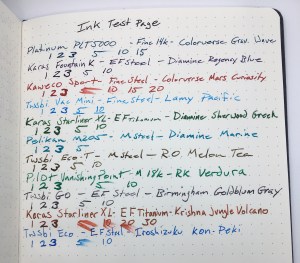 Ink Test Page
Platinum PLT5000 - Fine 14k - Colorverse Grav. Wave
1 2 3 5 10 15
Karas Fountain K - EF Steel - Diamine Regency Blue
1 2 3 5 10
Kaweco Sport - Fine Steel - Colorverse Mars Curiosity
1 2 3 5 10 15 20
Twsbi Vac Mini - Fine Steel - Lamy Pacific
1 2 3 5 10
Karas Starliner XL - EF Titanium - Diamine Sherwood Green
1 2 3 5 10
Pelikan M205 - M steel - Diamine Marine
1 2 3 5
Twsbi Eco-T - M steel - R.O. Melon Tea
1 2 3 5 10
Pilot Vanishing Point - M 18k - RK Verdura
1 2 3 5 10
Twsbi GO - EF Steel - Birmingham Goldblum Gray
1 2 3 5 10
Karas Starliner XL - EF Titanium - Krishna Jungle Volcano
1 2 3 10 20 30
Twsbi Eco - EF Steel - Iroshizuku Kon-Peki
1 2 3 5 10